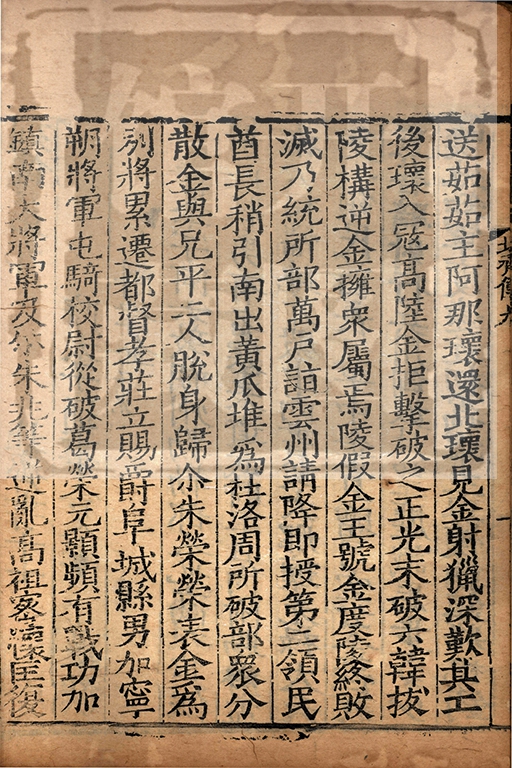 送茹茹主阿那瓌還北瓌見金射獵深歎其工
後瓌入寇高陸金拒擊破之正光末破六韓拔
陵構逆金擁衆屬焉陵假金王號金度陵終敗
滅乃統所部萬户詣雲州請降即授第二領民
酋長稍引南出黄瓜堆爲杜洛周所破部衆分
散金與兄平二人脫身歸尒朱榮榮表金爲
別將累遷都督孝莊立賜爵阜城縣男加寧
朔將軍屯騎校尉從破葛榮元顥頻有戰功加
鎮南大將軍及尒朱兆等逆亂高祖密懷匡復